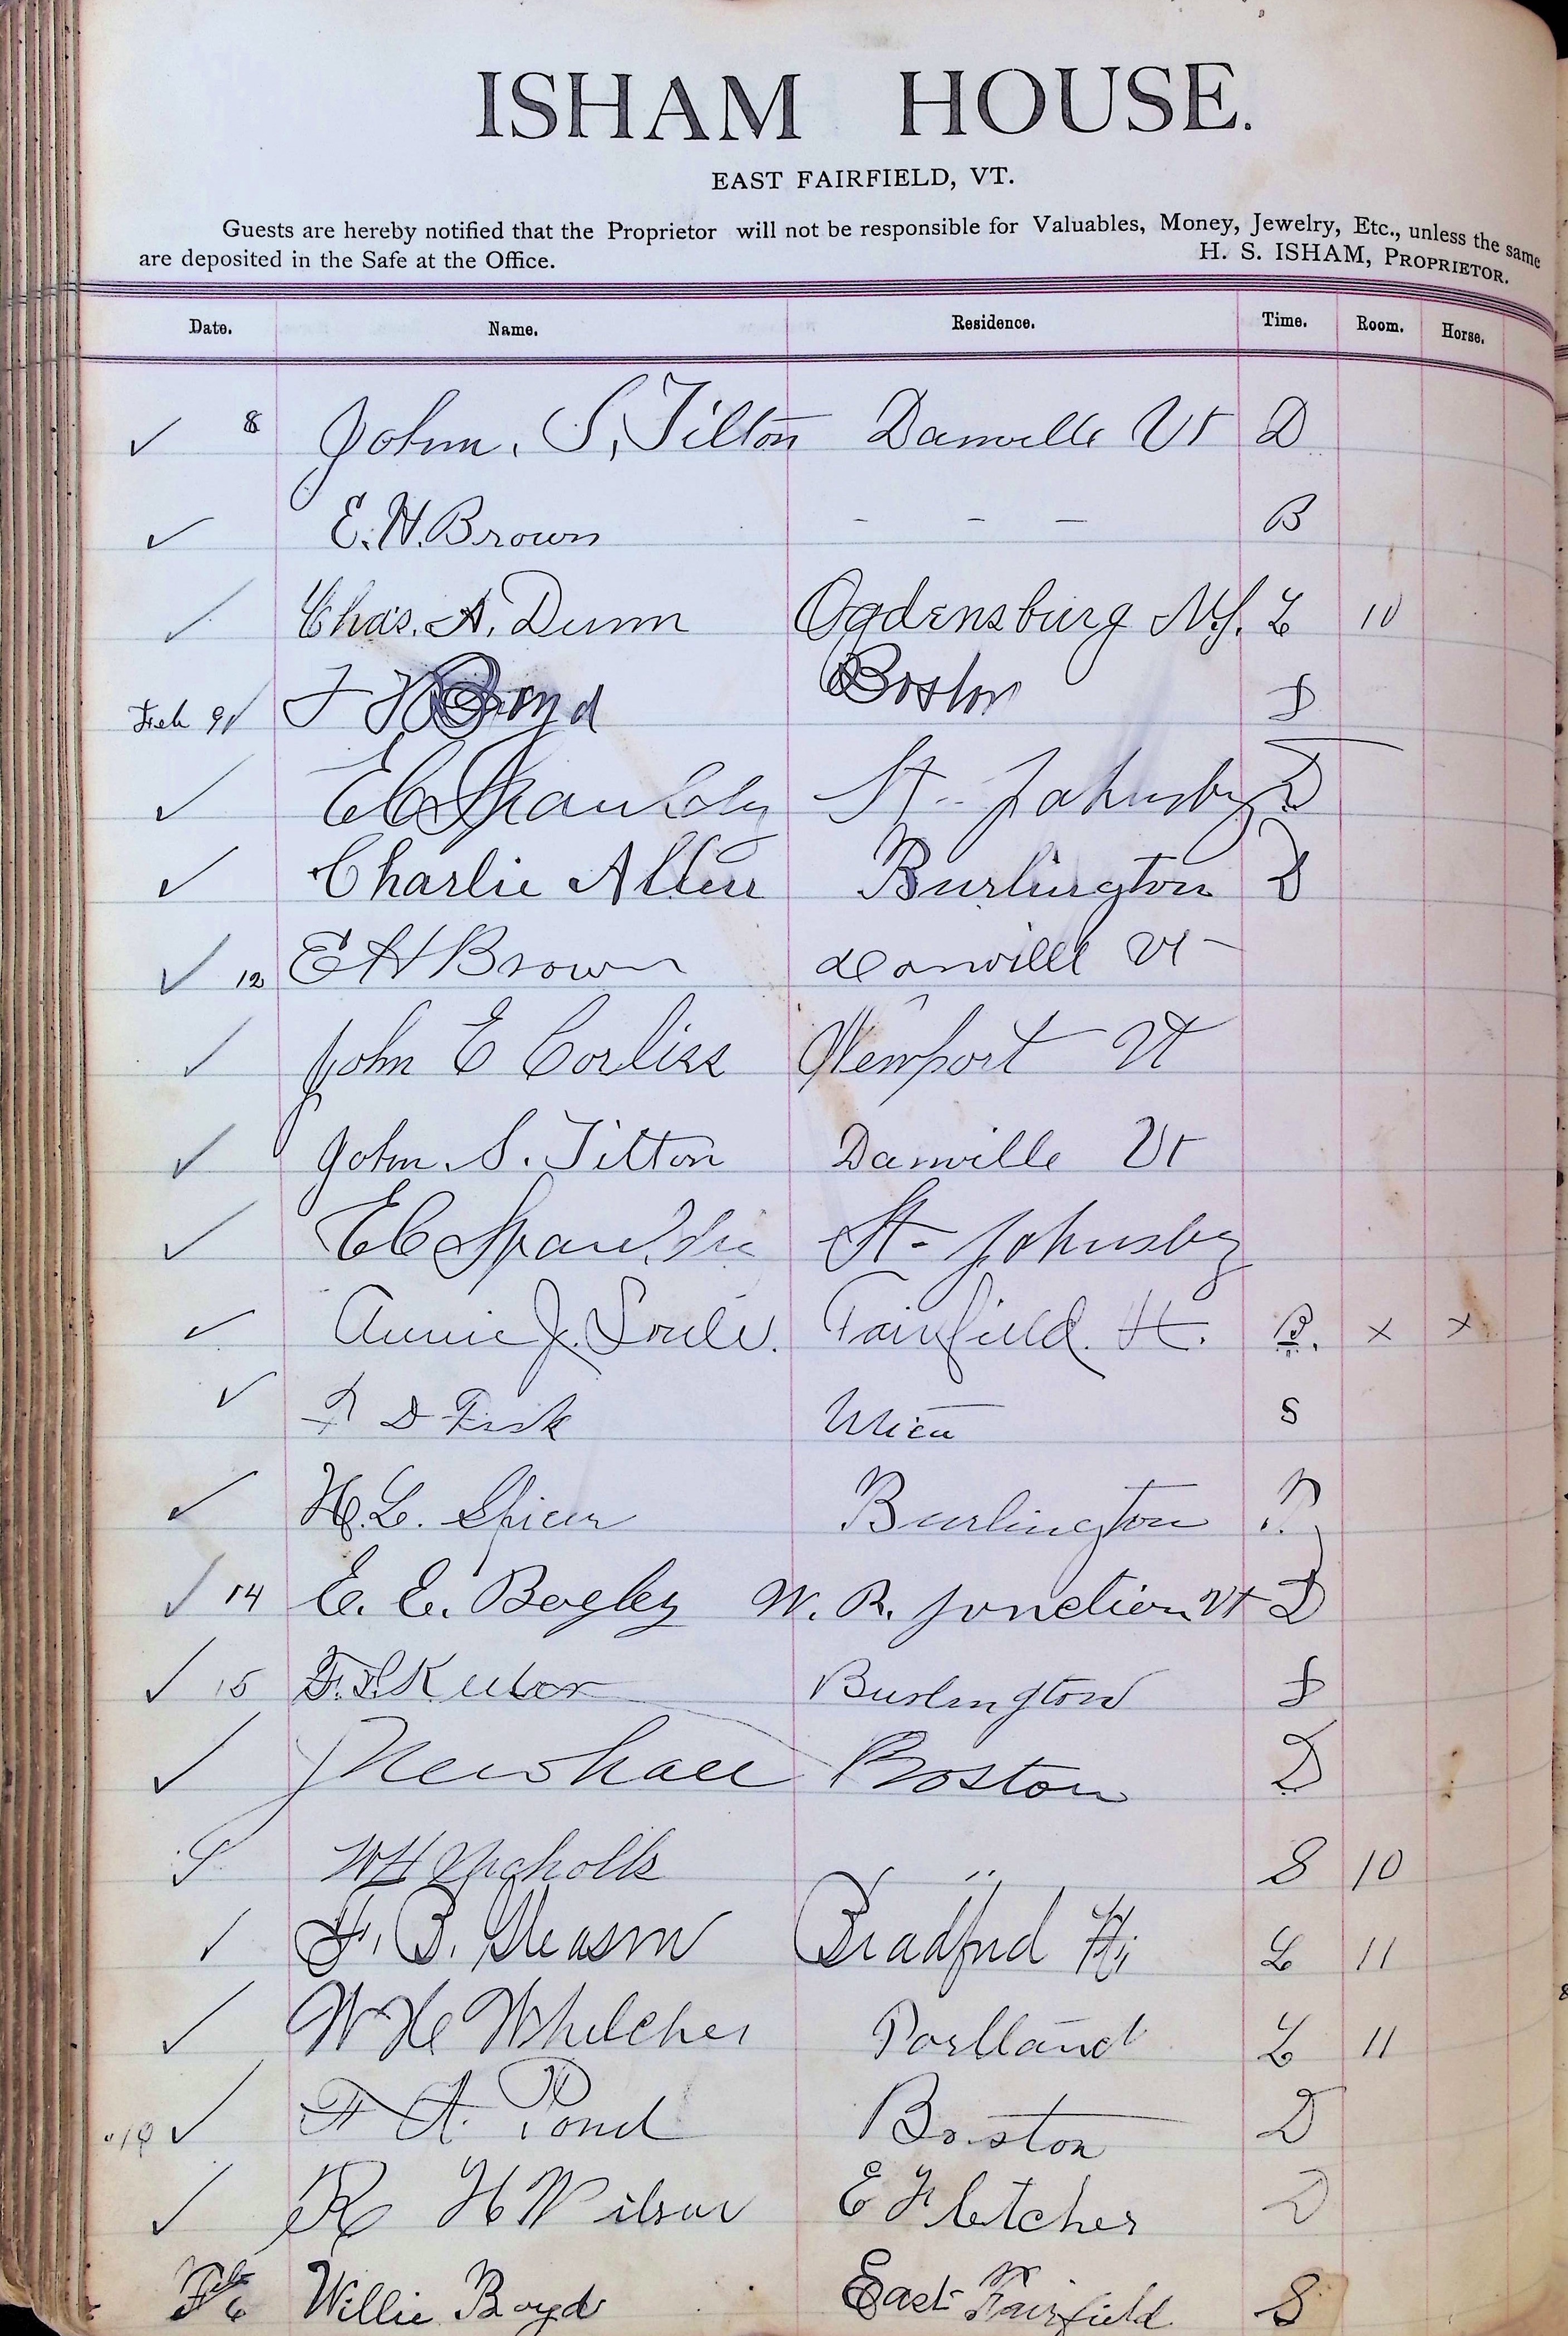 ISHAM HOUSE.
EAST FAIRFIELD, VT.
Guests are hereby notified that the Proprietor will not be responsible for Valuables, Money, Jewelry, Etc., unless the same
are deposited in the Safe at the Office. H. S. ISHAM, PROPRIETOR.
Date. Name. Residence. Time. Room. Horse.
✓ 8 John. S. Tilton Danville Vt D
✓ E. H. Brown - - - B
✓ Chas. A. Dunn Ogdensburg N.Y. L 10
Feb 9 ✓ Boyd Boston S
✓ E C St. Johnsby D
✓ Charlie Allen Burlington D
✓ 12 E H Brown Danville Vt
✓ John E Corliss Newport Vt
✓ John. S. Tilton Danville Vt
✓ E C St. Johnsby
✓ Annie J. Soule. Fairfield. Vt. B. x x
✓ D Fisk Utica S
✓ H. L. Spicer Burlington
✓ 14 E. E. W. R. Junction Vt D
✓ 15 Burlington S
✓ J Newhall Boston D
W H Nicholls " S 10
✓ F. B. Gleason Bradford Vt. L 11
✓ W H Whitcher Portland L 11
✓ F A. Pond Boston D
✓ R H Wilson E Fletcher D
Feb Willie Boyd East Fairfield S